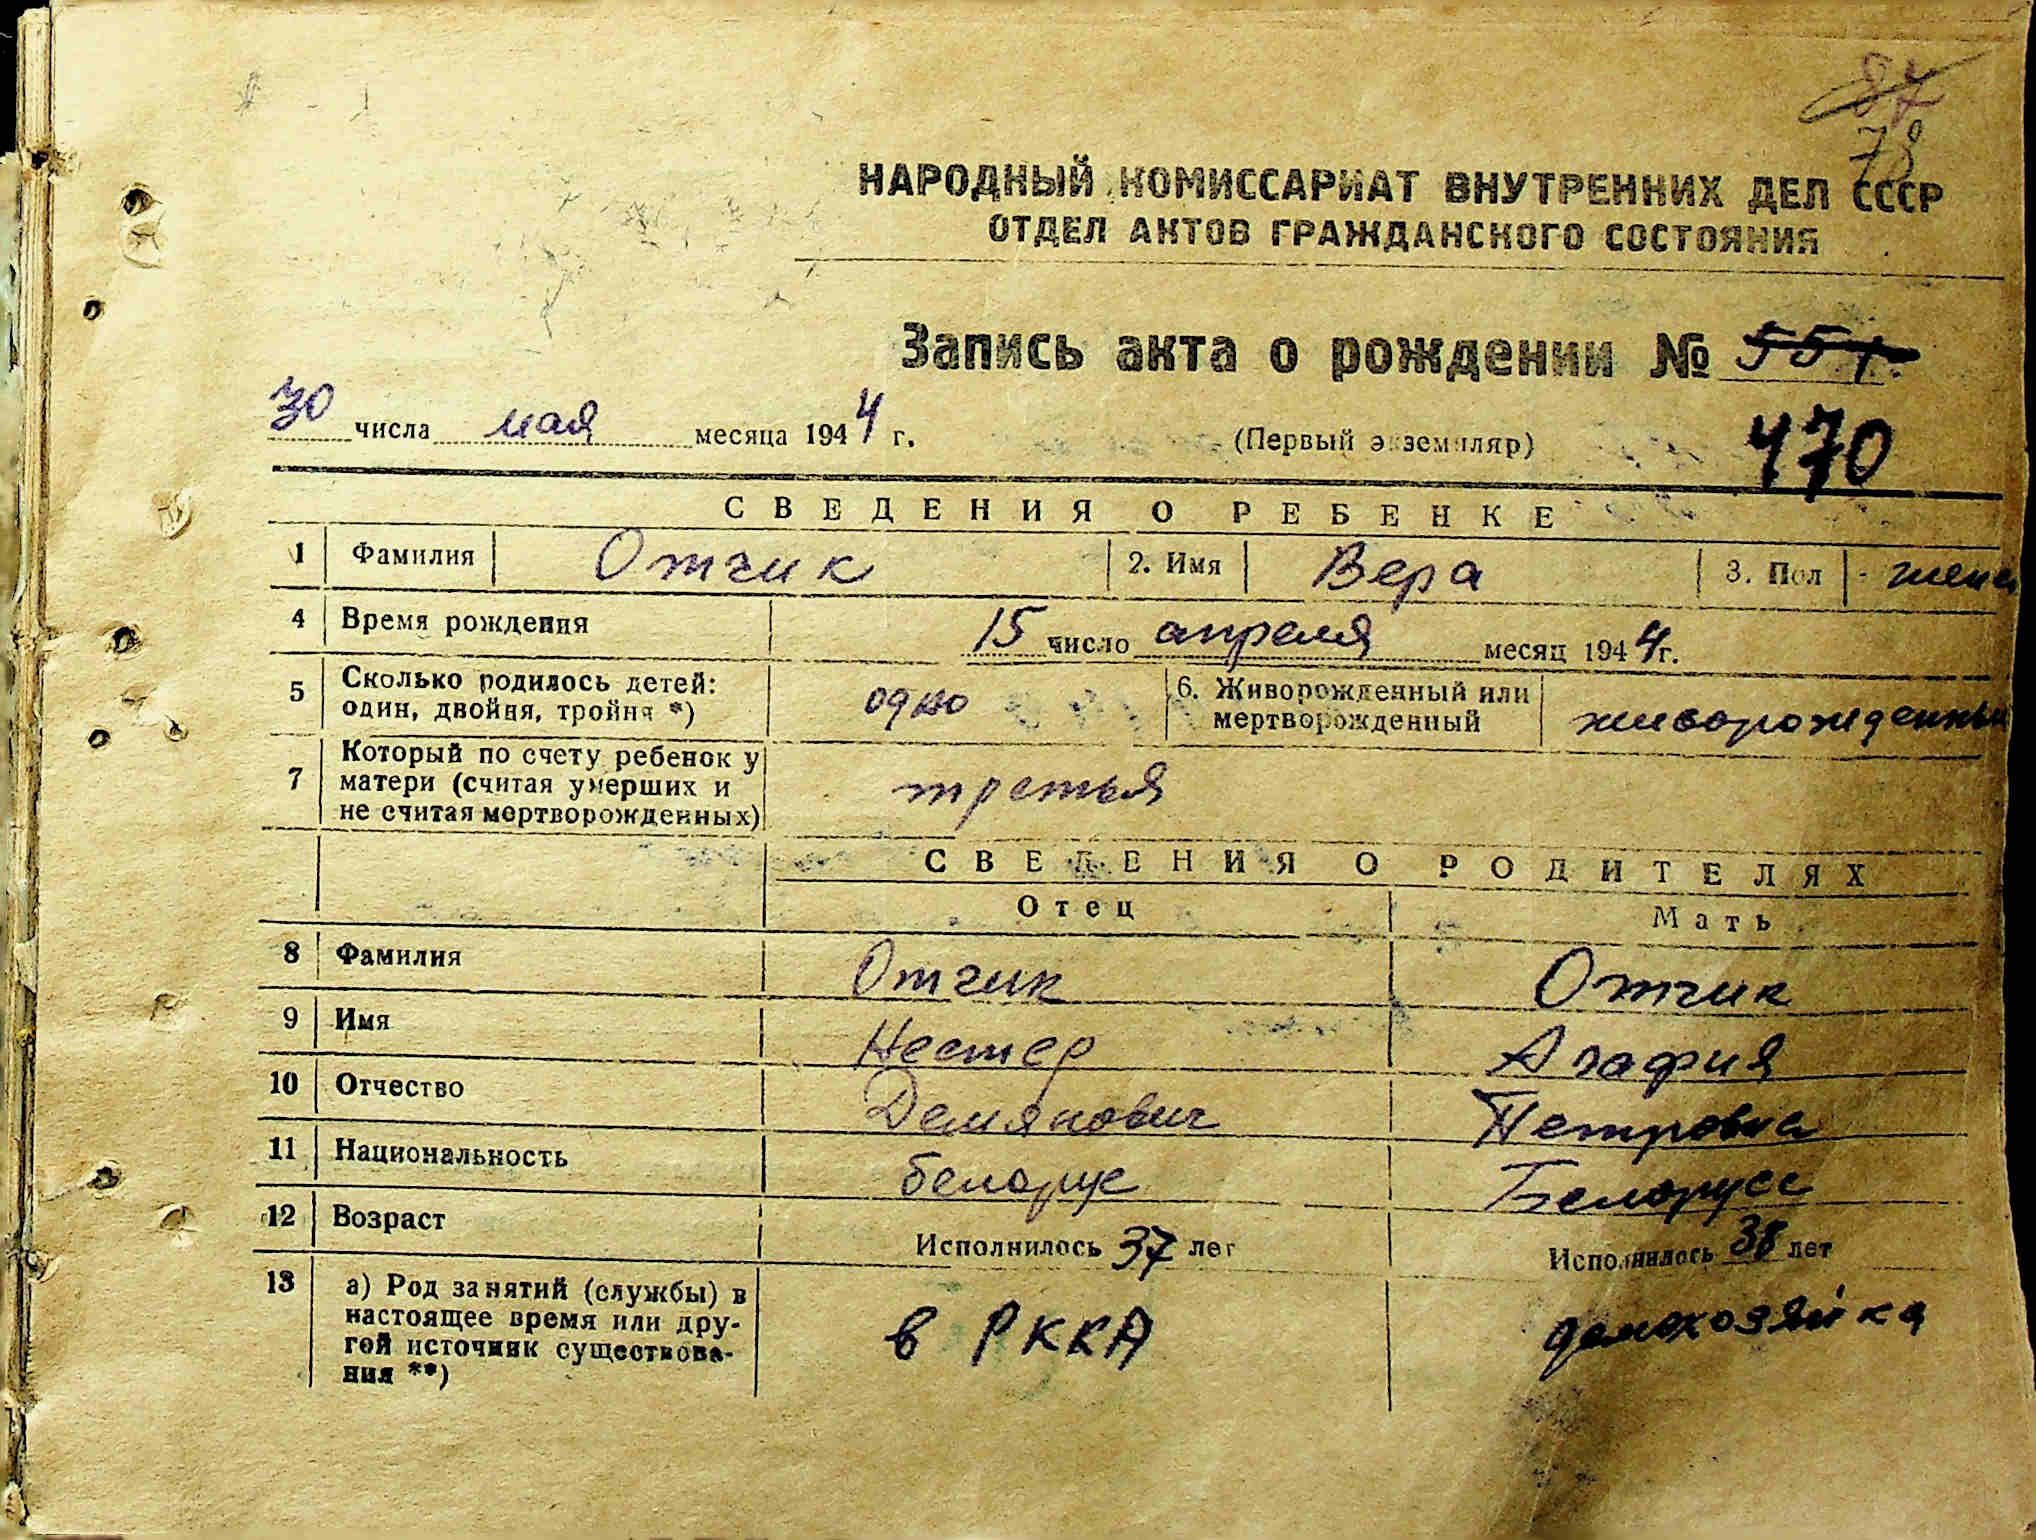 87
78
НАРОДНЫЙ КОМИССАРИАТ ВНУТРЕННИХ ДЕЛ СССР
ОТДЕЛ АКТОВ ГРАЖДАНСКОГО СОСТОЯНИЯ
Запись акта о рождении №
30 числа мая месяца 1944 г. (Первый экземпляр) 470
СВЕДЕНИЯ О РЕБЕНКЕ
1 Фамилия Отчик 2. Имя Вера 3. Пол - женс
4 Время рождения 15 число апреля месяц 1944 г.
5 Сколько родилось детей: один, двойня, тройня *) одно 6. Живорожденный или мертворожденный живорожденный
7 Который по счету ребенок у матери (считая умерших и не считая мертворожденных) третья
СВЕДЕНИЯ О РОДИТЕЛЯХ
Отец Мать
8 Фамилия Отчик Отчик
9 Имя Нестер Агафия
10 Отчество Демянович Петровна
11 Национальность белорус Белорусс
12 Возраст Исполнилось 37 лет Исполнилось 38 лет
13 а) Род занятий (службы) в
настоящее время или дру-
гой источник существова-
ния **) в РККА домохозяйка